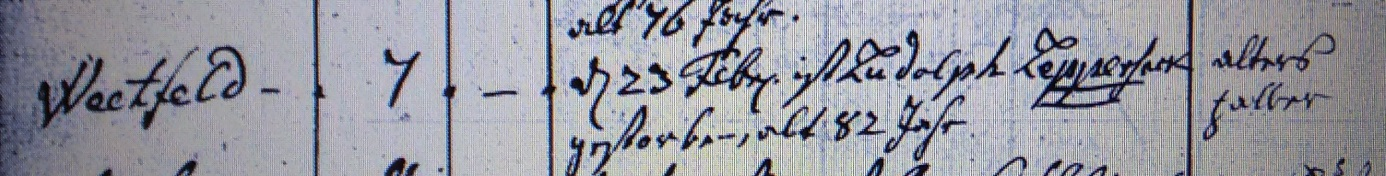 alt 76 Jahr.
Westfeld - 7 - d 23 Febr. ist Ludolph alters
gestorben, alt 82 Jahr halber